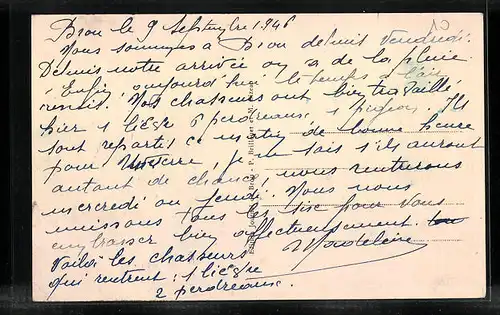 Brou le 9 Septembre 1946
Nous sommes à Brou depuis Vendredi.
Depuis notre arrivée on a de la pluie
Enfin, aujourd'hui le temps a l'air
remis. Nos chasseurs ont bien travaillé
hier 1 liègre 6 perdreaux 1 pigeon. Ils
sont repartis ce matin de bonne heure
pour je ne sais s'ils auront
autant de chance. nous rentrerons
mercredi ou jeudi. Nous nous
unissons tous les six pour vous
embrasser bien affectueusement.
Madeleine
Voilà les chasseurs
qui rentrent : 1 liègre
2 perdreaux.